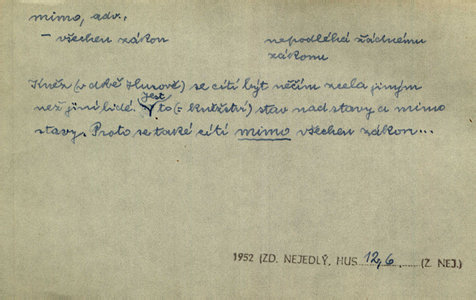 mimo, adv.
– všechen zákon
nepodléhá žádnému
zákonu
Kněz (v době Husově) se cítí být něčím zcela jiným
než jiní lidé. Jest to (= kněžství) stav nad stavy a mimo
stavy. Proto se také cítí mimo všechen zákon...
1952 (ZD. NEJEDLÝ, HUS 12,6 (Z NEJ.)